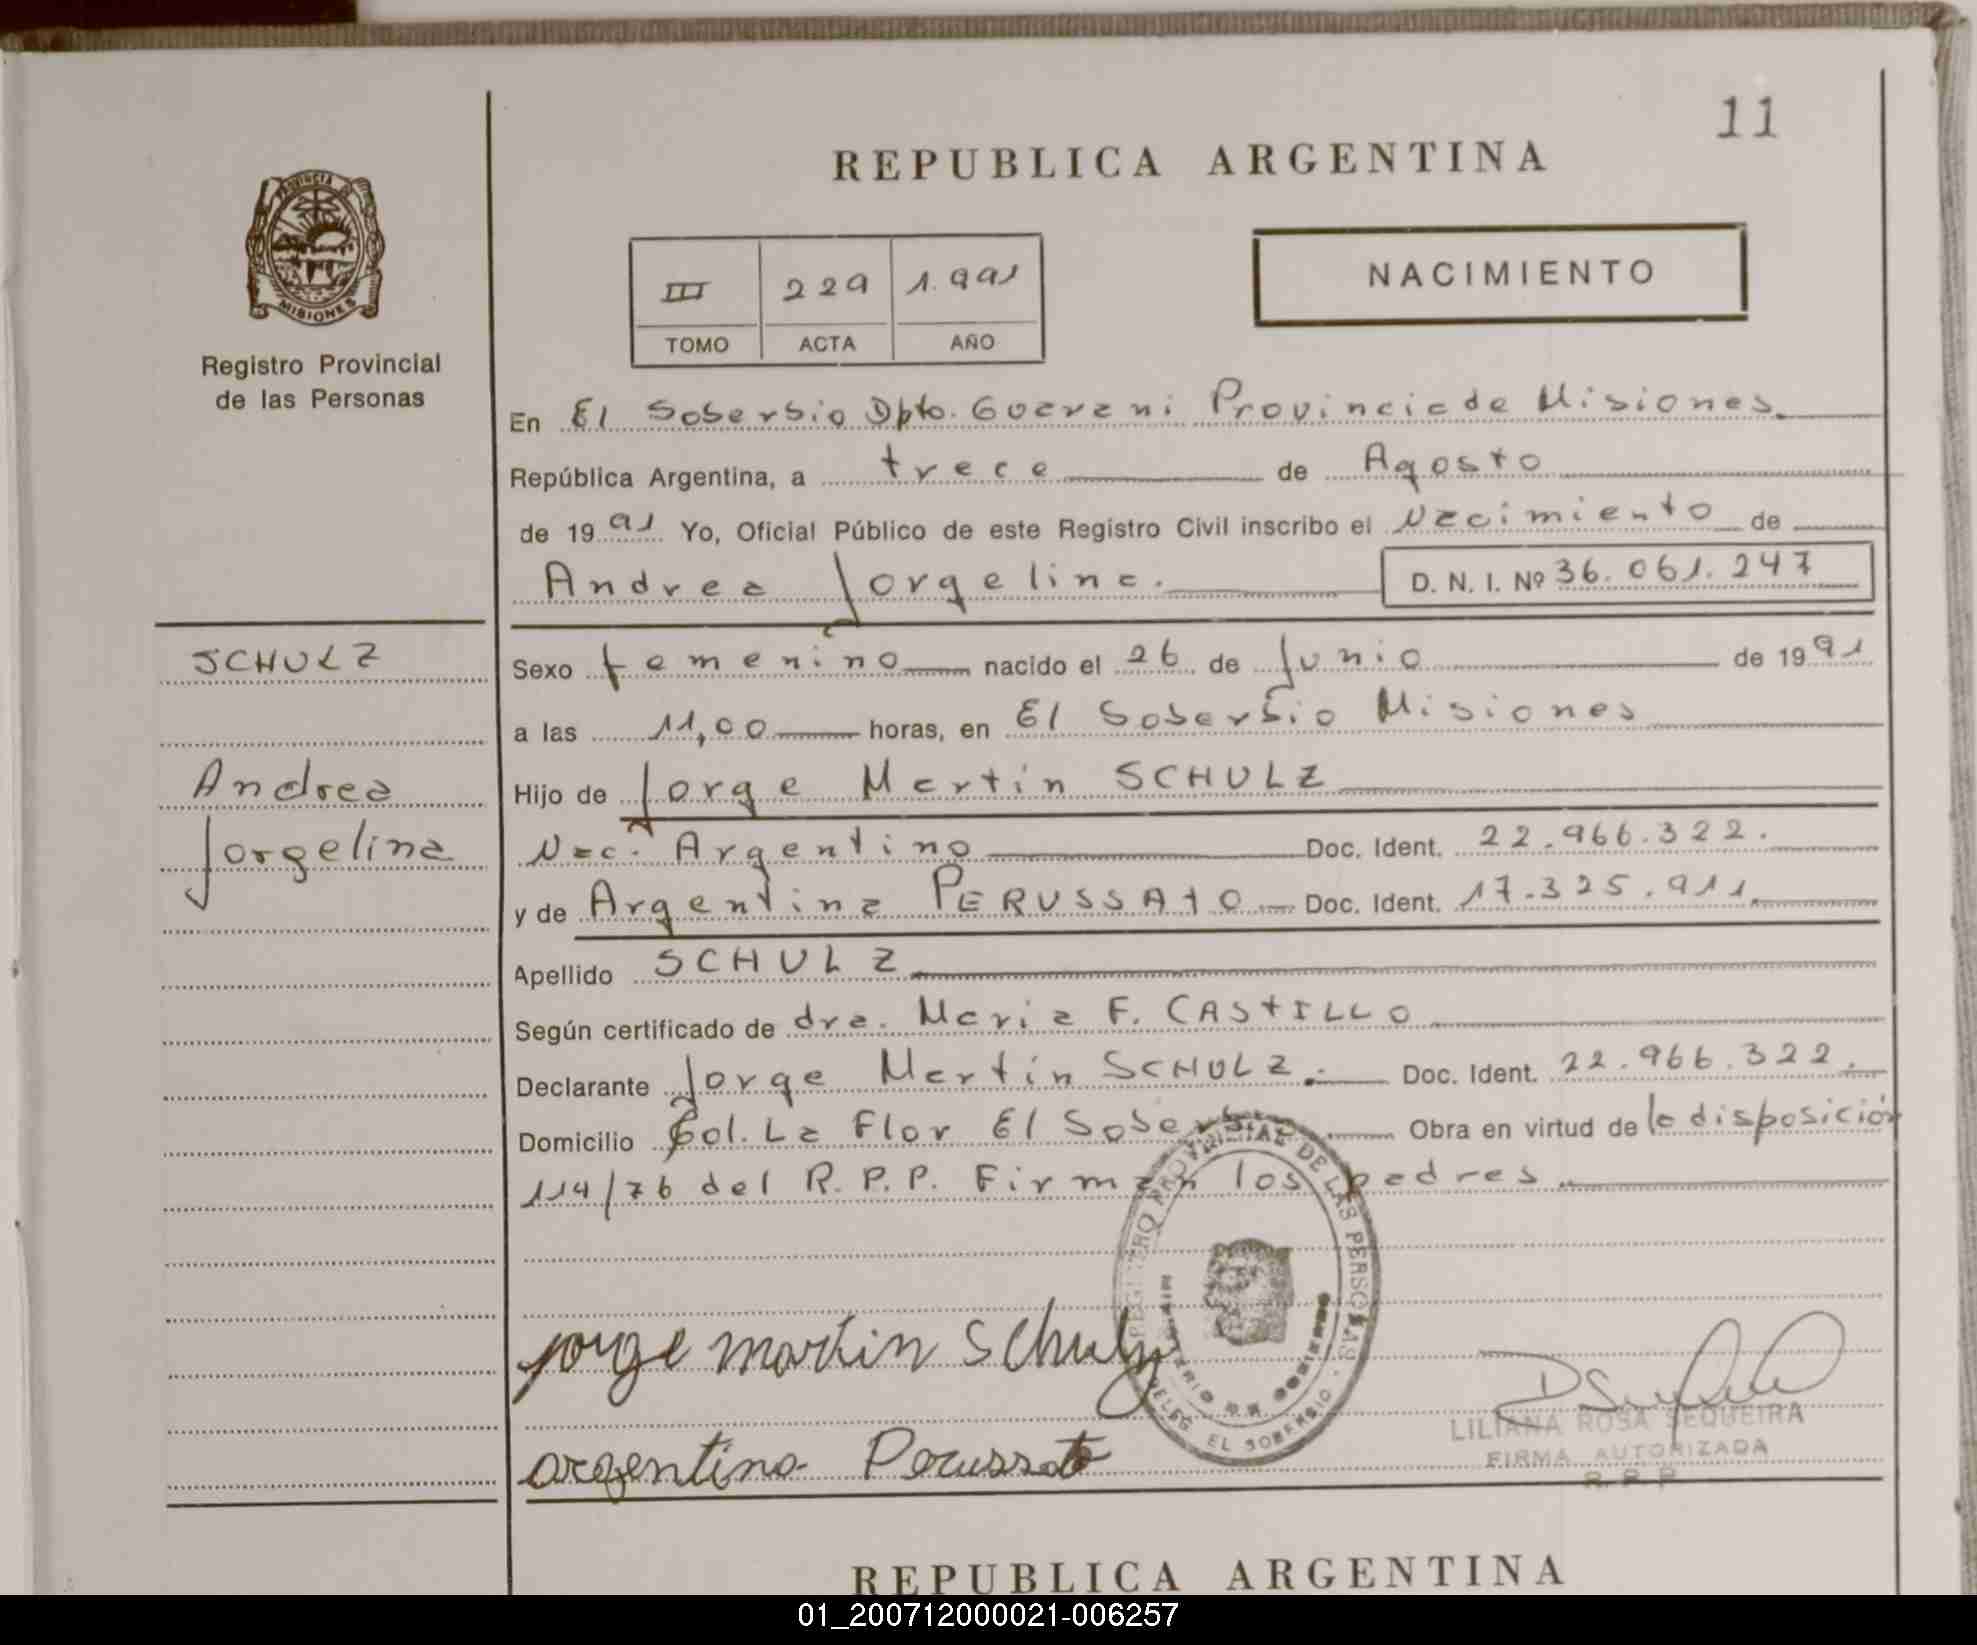 11
REPUBLICA ARGENTINA
PROVINCIA
MISIONES
Registro Provincial
de las Personas
III 229 1.991
TOMO ACTA AÑO
NACIMIENTO
En El Soberbio Dpto. Guarani Provincia de Misiones.
República Argentina, a trece de Agosto
de 1991 Yo, Oficial Público de este Registro Civil inscribo el Nacimiento de
Andrea Jorgelina. D. N. I. Nº 36.061.247
SCHULZ
Andrea
Jorgelina
Sexo femenino nacido el 26 de Junio de 1991
a las 11,00 horas, en El Soberbio Misiones
Hijo de Jorge Martin SCHULZ
Nac. Argentino Doc. Ident. 22.966.322.
y de Argentina PERUSSATO Doc. Ident. 17.325.911
Apellido SCHULZ
Según certificado de dra. Maria F. CASTILLO
Declarante Jorge Martin SCHULZ. Doc. Ident. 22.966.322.
Domicilio Col. La Flor El Soberbio Obra en virtud de la disposición
114/76 del R. P. P. Firman los padres
REGISTRO PROVINCIAL DE LAS PERSONAS
DELEG. EL SOBERBIO
jorge martin Schulz
argentina Perussato
LILIANA ROSA SEQUEIRA
FIRMA AUTORIZADA
R. P. P
REPUBLICA ARGENTINA
01_200712000021-006257